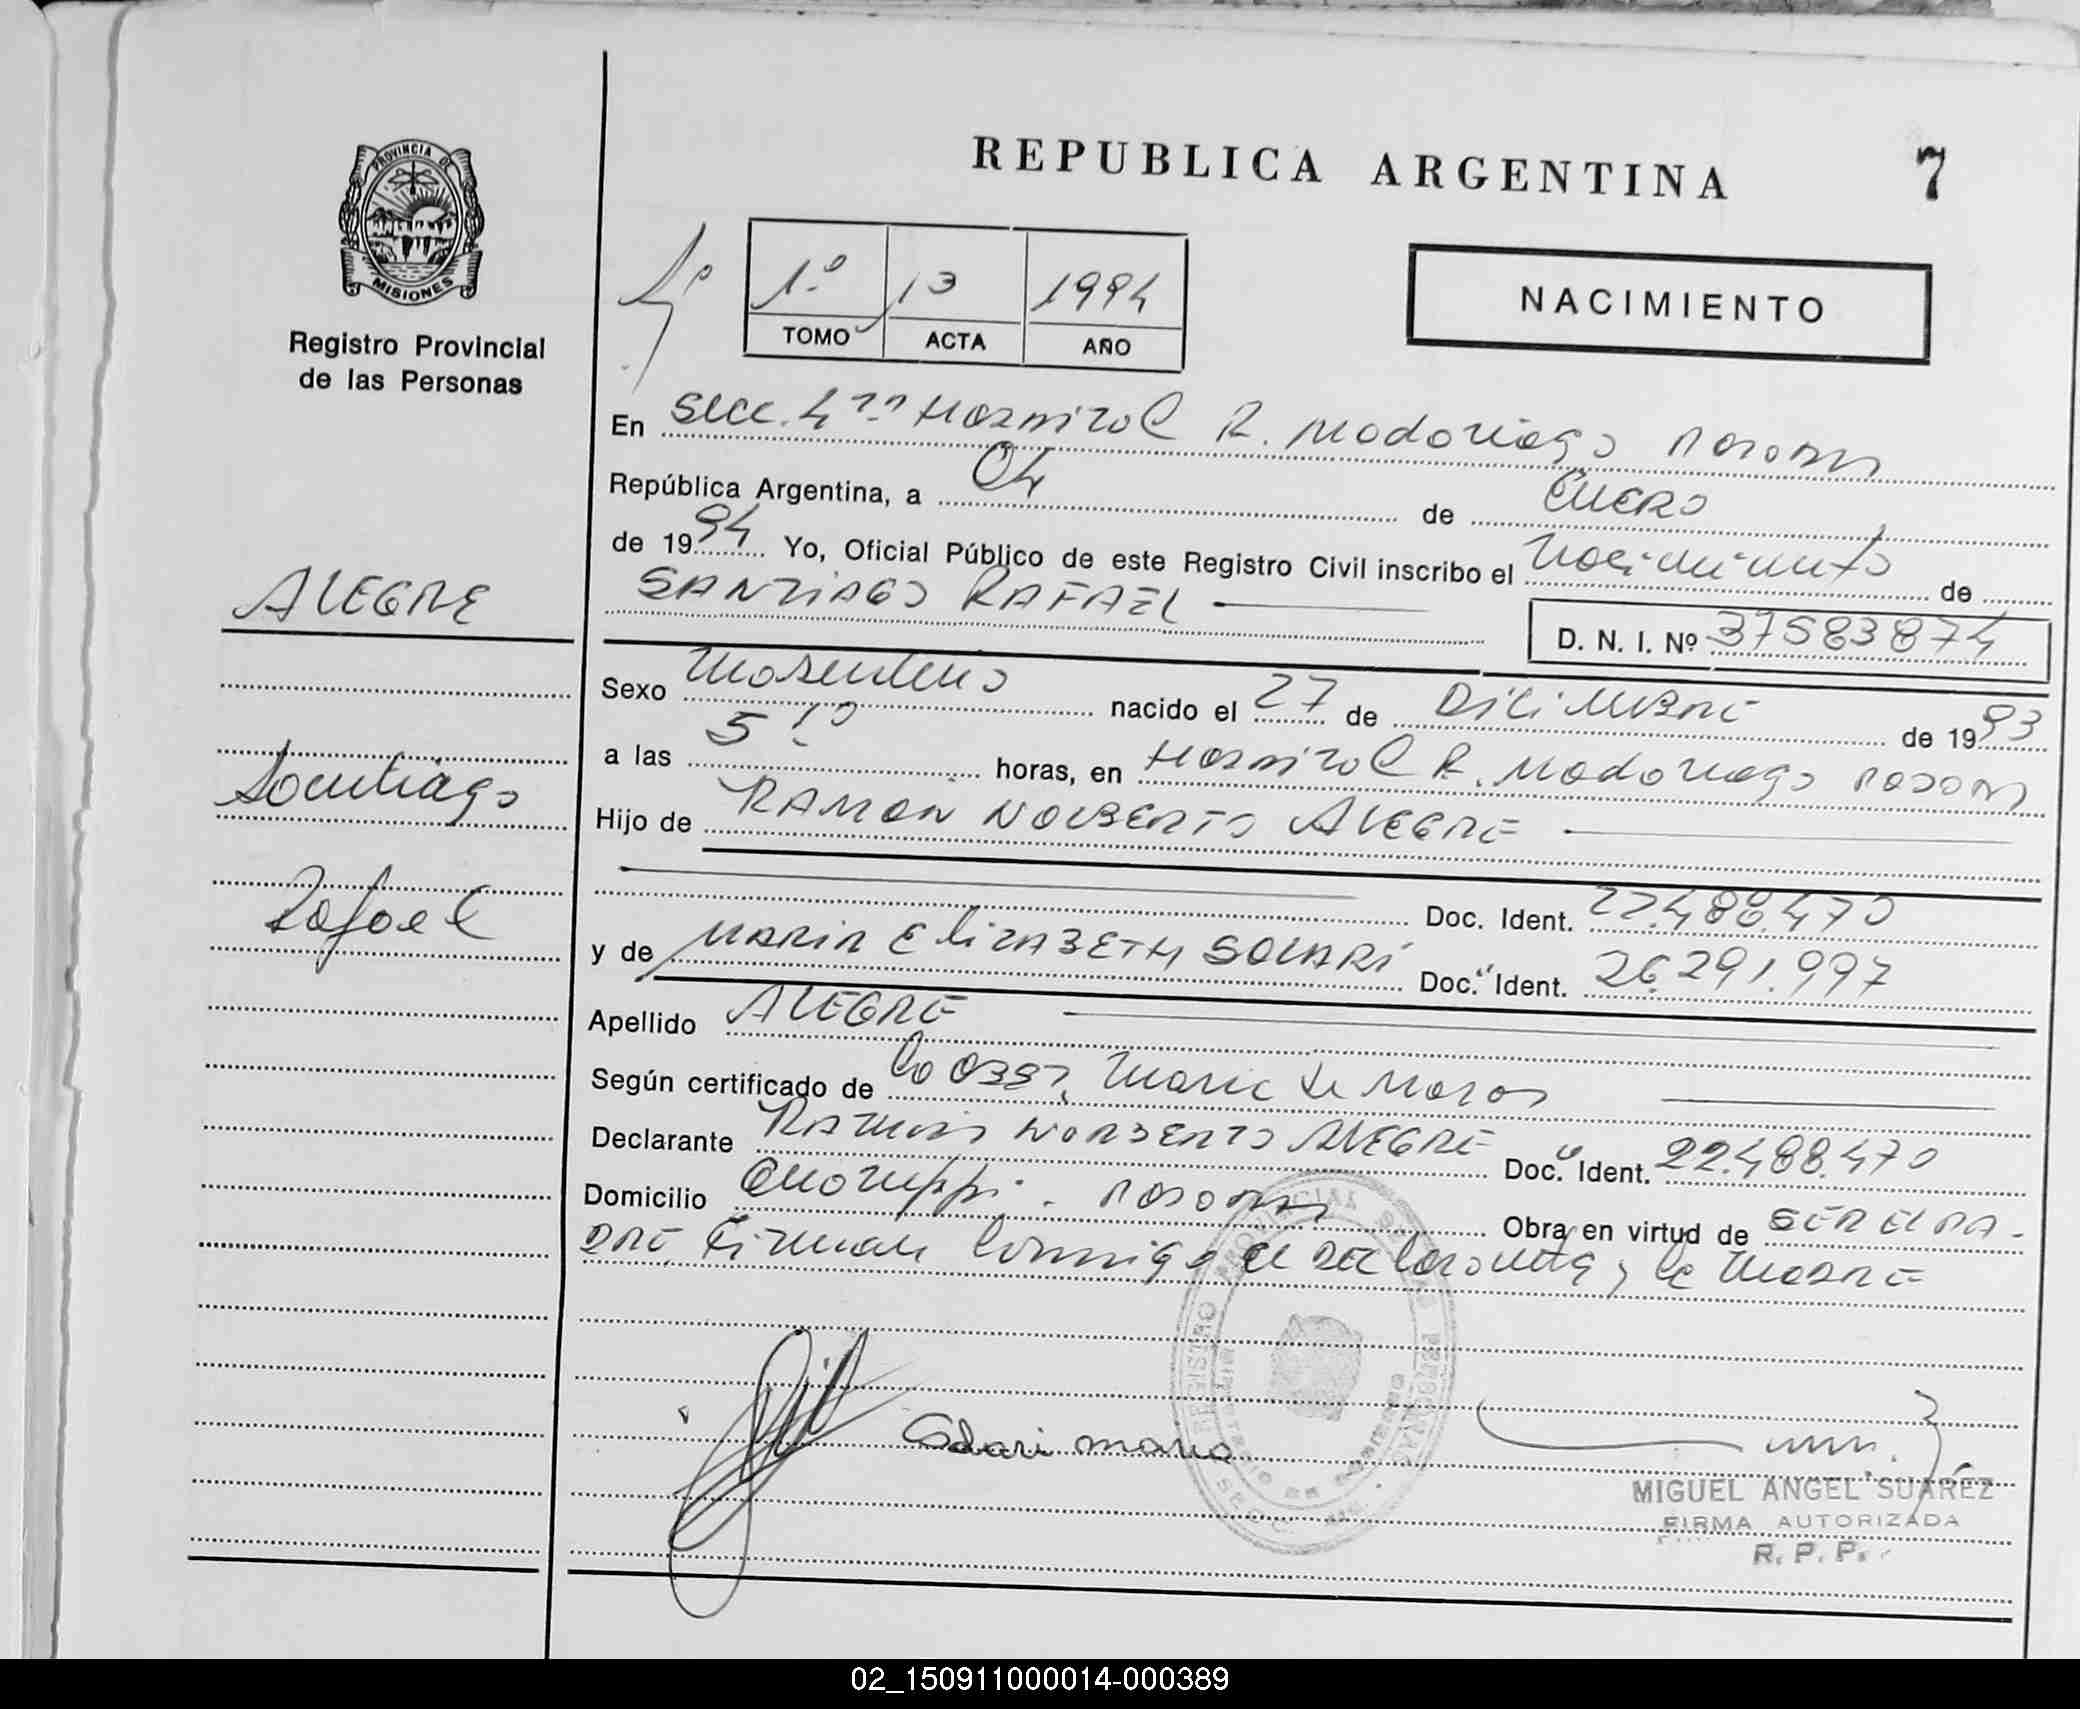 PROVINCIA DE
MISIONES
Registro Provincial
de las Personas
REPUBLICA ARGENTINA
7
1º 13 1994
TOMO ACTA AÑO
NACIMIENTO
En Secc. 4ta Hospital R. Madariaga Posadas
República Argentina, a 04 de Enero
de 1994 Yo, Oficial Público de este Registro Civil inscribo el Nacimiento de
SANTIAGO RAFAEL
D. N. I. Nº 37583874
ALEGRE
Santiago
Rafael
Sexo Masculino nacido el 27 de Diciembre de 1993
a las 5 horas, en Hospital R. Madariaga Posadas
Hijo de RAMON NORBERTO ALEGRE
Doc. Ident. 22.488.470
y de MARIA ELIZABETH SOLARI Doc. Ident. 26.291.997
Apellido ALEGRE
Según certificado de la Obst. Maria de
Declarante RAMON NORBERTO ALEGRE Doc. Ident. 22.488.470
Domicilio Posadas Obra en virtud de SER EL PA-
DRE Firman conmigo el declarante y la madre
Solari maria
REGISTRO PROVINCIAL DE LAS PERSONAS
MIGUEL ANGEL SUAREZ
FIRMA AUTORIZADA
R. P. P.
02_150911000014-000389